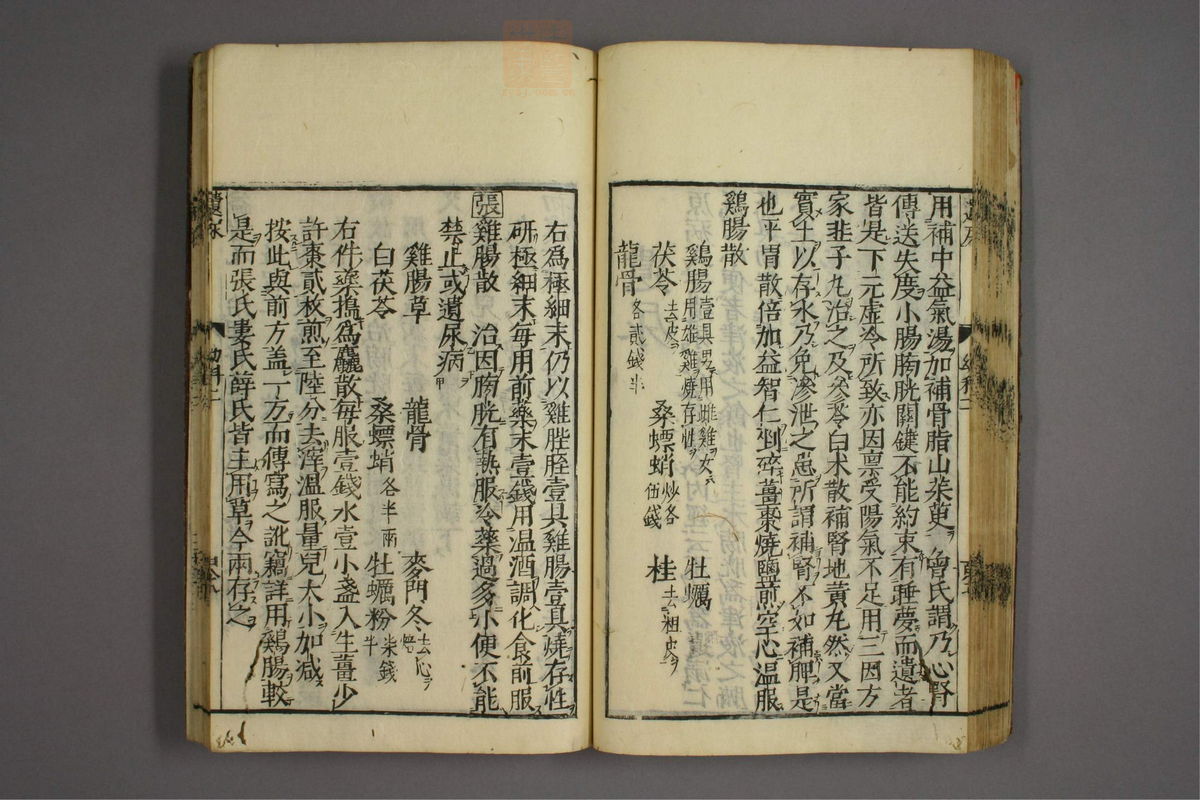 用補中益氣湯加補骨脂山茱萸曾氏謂乃心腎
傳送失度小腸膀胱關鍵不能約束有睡夢而遺者
皆是下元虛冷所致亦因稟受陽氣不足用三因方
家韭子丸治之及參苓白朮散補腎地黃丸然又當
實土以存水乃免滲泄之患所謂補腎不如補脾是
也平胃散倍加益智仁剉碎薑棗燒鹽煎空心溫服
鷄腸散
鷄腸壹具男用雌雞女用雄雞燒存性 牡蠣
茯苓去皮 桑螵蛸炒各伍錢 桂去粗皮
龍骨各貳錢半
右為極細末仍以雞䏶胵壹具雞腸壹具燒存性
研極細末每用前藥末壹錢用温酒調化食前服
張雞腸散 治因膀胱有熱服冷藥過多小便不能
禁止或遺尿病
雞腸草 龍骨 麥門冬去心焙
白茯苓 桑螵蛸各半兩 牡蠣粉柒錢半
右件藥搗為麤散每服壹錢水壹小盞入生薑少
許棗貳枚煎至陸分去滓溫服量兒大小加減
按此與前方盖一方而傳寫之訛竊詳用鷄腸較
是而張氏婁氏薛氏皆主用草今兩存之
遺尿
幼科二